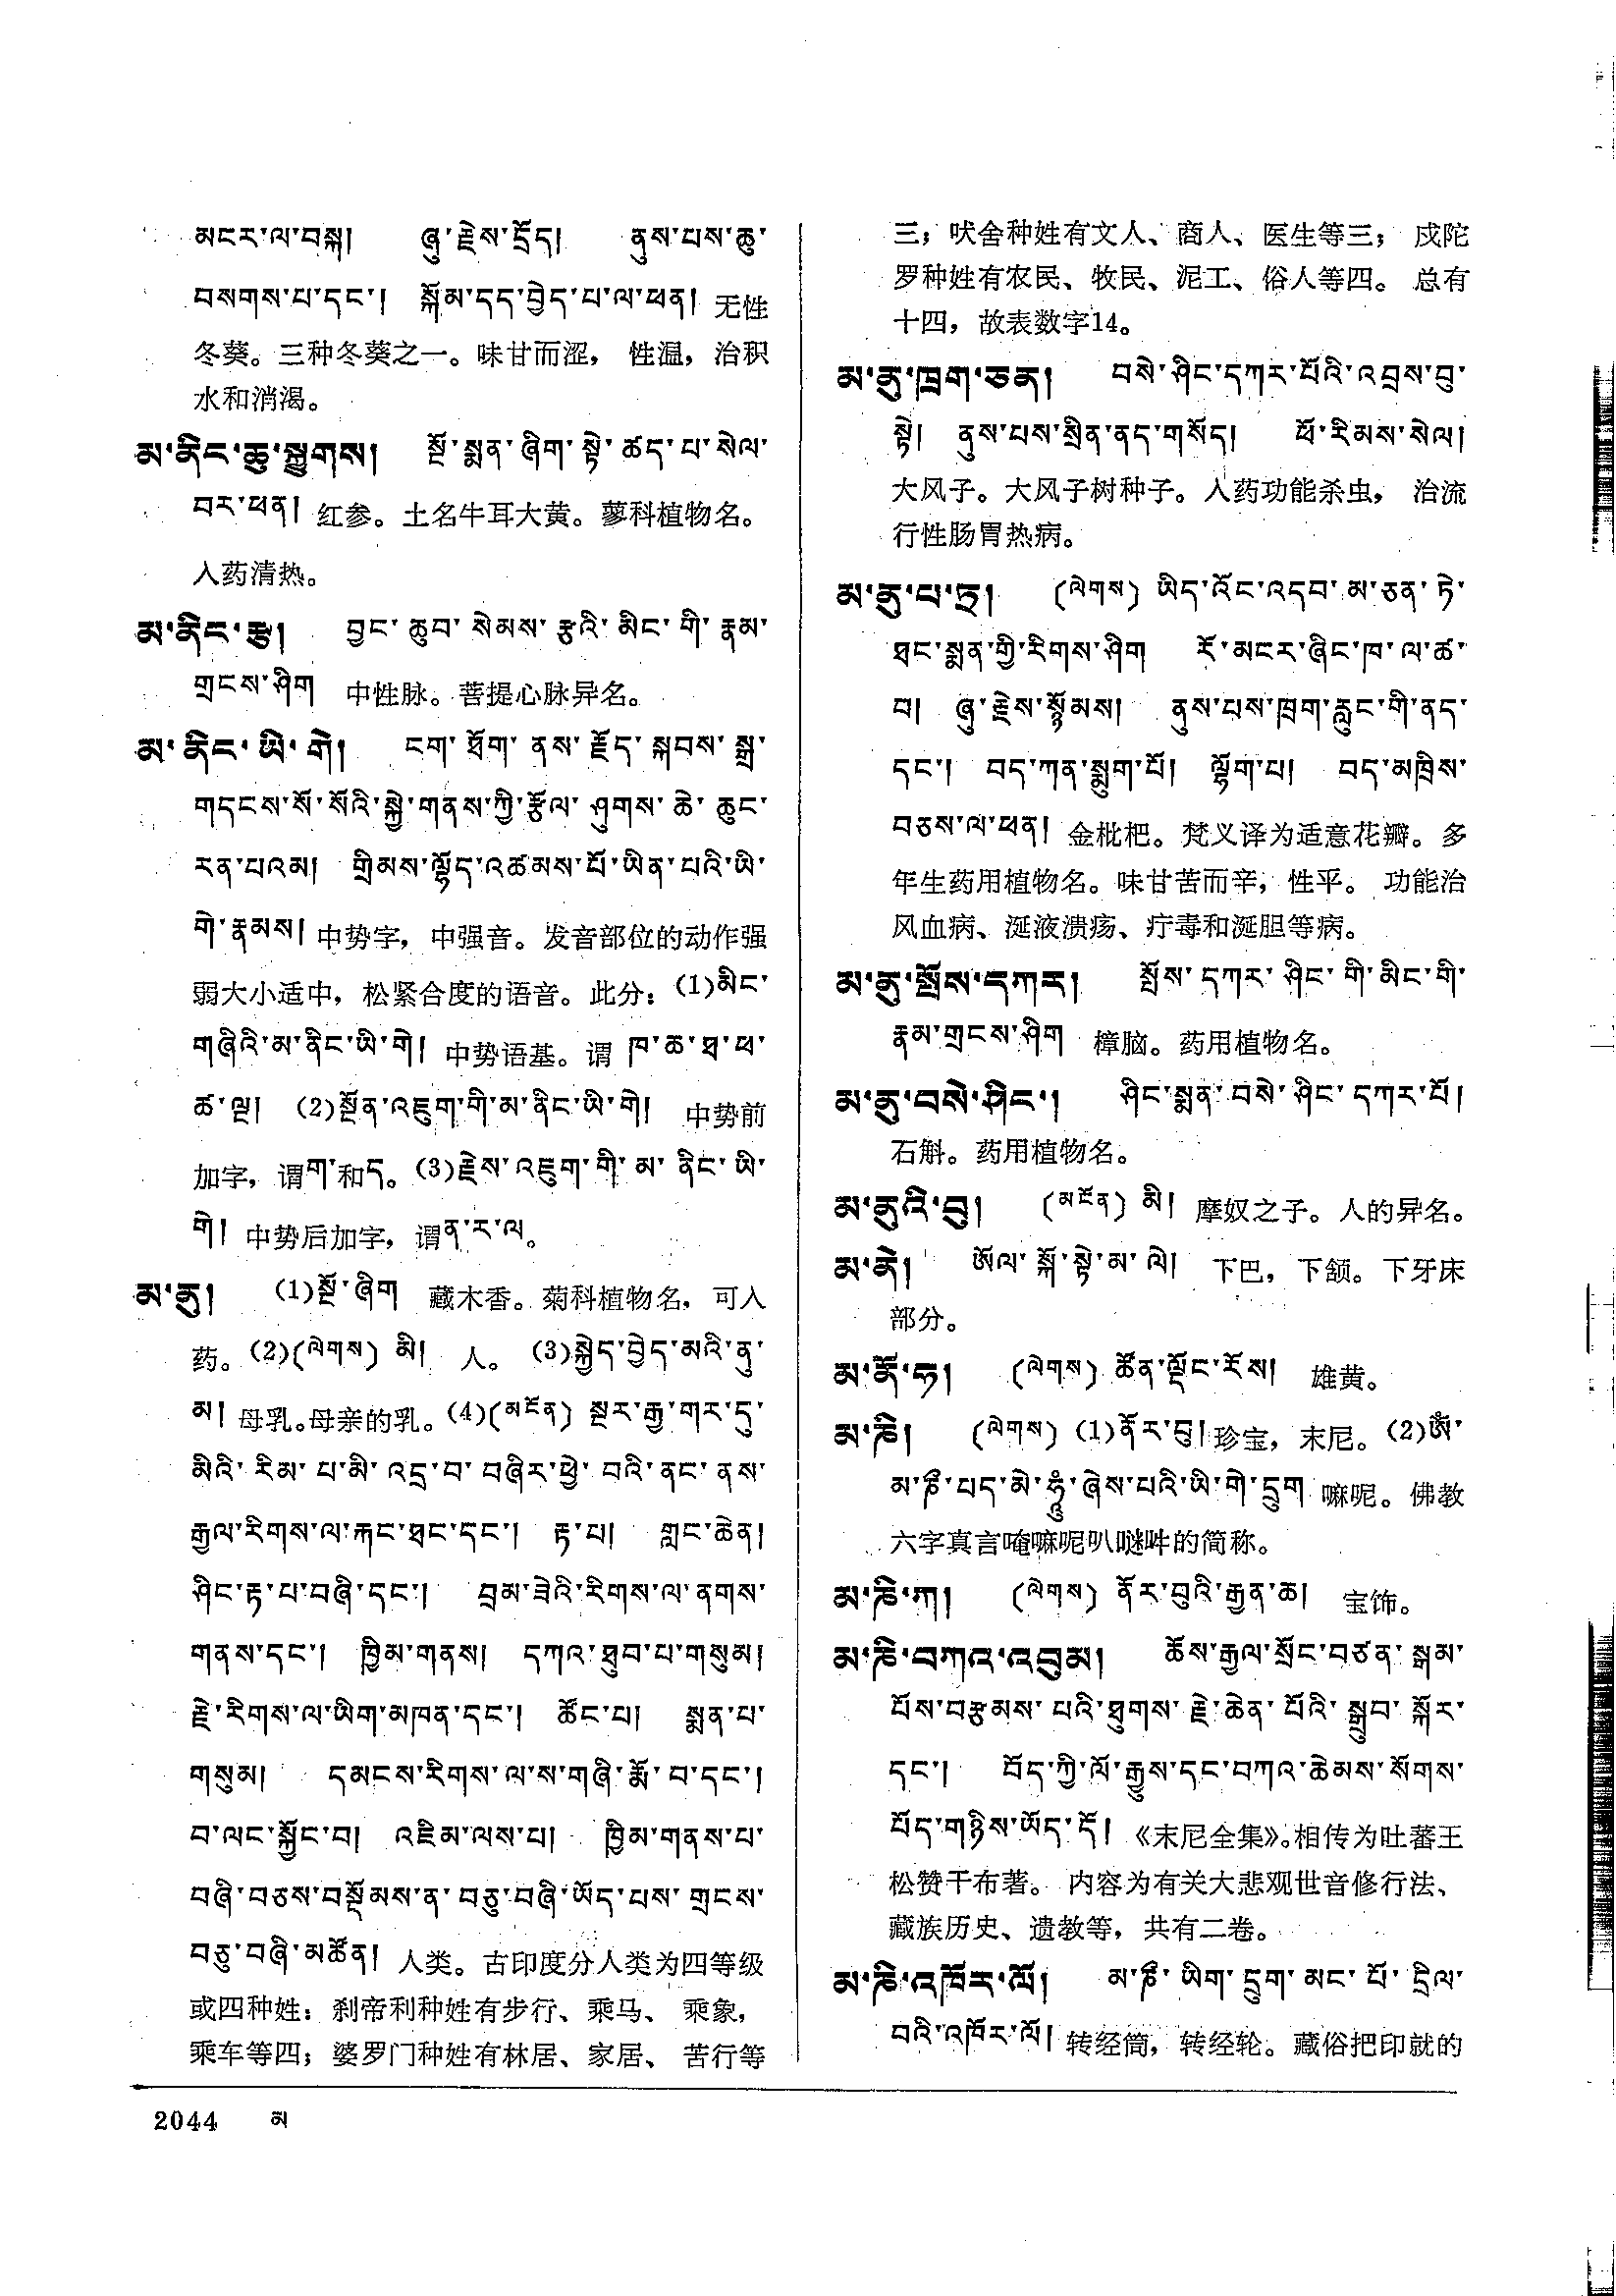 མངར་ལ་བསྐ། ཞུ་རྗེས་དྲོད། ནུས་པས་ཆུ་
བསགས་པ་དང་། སྐོམ་དད་བྱེད་པ་ལ་ཕན། 无性
冬葵。三种冬葵之一。味甘而涩， 性温，治积
水和消渴。
མ་ནིང་ཆུ་སྐྱུགས། སྔོ་སྨན་ཞིག་སྟེ་ཚད་པ་སེལ་
བར་ཕན། 红参。土名牛耳大黄。蓼科植物名。
入药清热。
མ་ནིང་རྩ། བྱང་ཆུབ་སེམས་རྩའི་མིང་གི་རྣམ་
གྲངས་ཤིག 中性脉。菩提心脉异名。
མ་ནིང་ཡི་གེ། ངག་ཐོག་ནས་རྗོད་སྐབས་སྒྲ་
གདངས་སོ་སོའི་སྐྱེ་གནས་ཀྱི་རྩོལ་ཤུགས་ཆེ་ཆུང་
རན་པའམ། གྲིམས་ལྷོད་འཚམས་པོ་ཡིན་པའི་ཡི་
གེ་རྣམས། 中势字，中强音。发音部位的动作强
弱大小适中，松紧合度的语音。此分：(1)མིང་
གཞིའི་མ་ནིང་ཡི་གེ། 中势语基。谓 ཁ་ཆ་ཐ་ཕ་
ཚ་ལྔ། (2)སྔོན་འཇུག་གི་མ་ནིང་ཡི་གེ། 中势前
加字，谓ག་和ད。(3)རྗེས་འཇུག་གི་མ་ནིང་ཡི་
གེ། 中势后加字，谓ན་ར་ལ。
མ་ནུ། (1)སྔོ་ཞིག 藏木香。菊科植物名，可入
药。(2)(ལེགས) མི། 人。 (3)སྐྱེད་བྱེད་མའི་ནུ་
མ། 母乳。母亲的乳。(4)(མངོན) སྔར་རྒྱ་གར་དུ་
མིའི་རིམ་པ་མི་འདྲ་བ་བཞིར་ཕྱེ་བའི་ནང་ནས་
རྒྱལ་རིགས་ལ་རྐང་ཐང་དང་། རྟ་པ། གླང་ཆེན།
ཤིང་རྟ་པ་བཞི་དང་། བྲམ་ཟེའི་རིགས་ལ་ནགས་
གནས་དང་། ཁྱིམ་གནས། དཀའ་ཐུབ་པ་གསུམ།
རྗེ་རིགས་ལ་ཡིག་མཁན་དང་། ཚོང་པ། སྨན་པ་
གསུམ། དམངས་རིགས་ལ་ས་གཞི་རྨོ་བ་དང་།
བ་ལང་སྐྱོང་བ། འཇིམ་ལས་པ། ཁྱིམ་གནས་པ་
བཞི་བཅས་བསྡོམས་ན་བཅུ་བཞི་ཡོད་པས་གྲངས་
བཅུ་བཞི་མཚོན། 人类。古印度分人类为四等级
或四种姓：刹帝利种姓有步行、乘马、 乘象，
乘车等四；婆罗门种姓有林居、家居、 苦行等
三；吠舍种姓有文人、商人、医生等三； 戍陀
罗种姓有农民、牧民、泥工、俗人等四。 总有
十四，故表数字14。
མ་ནུ་ཁྲག་ཅན། བསེ་ཤིང་དཀར་པོའི་འབྲས་བུ་
སྟེ། ནུས་པས་སྲིན་ནད་གསོད། ཕོ་རིམས་སེལ།
大风子。大风子树种子。入药功能杀虫， 治流
行性肠胃热病。
མ་ནུ་པ་ཏྲ། (ལེགས) ཡིད་འོང་འདབ་མ་ཅན་ཏེ་
ཐང་སྨན་གྱི་རིགས་ཤིག རོ་མངར་ཞིང་ཁ་ལ་ཚ་
བ། ཞུ་རྗེས་སྙོམས། ནུས་པས་ཁྲག་རླུང་གི་ནད་
དང་། བད་ཀན་སྨུག་པོ། ལྷོག་པ། བད་མཁྲིས་
བཅས་ལ་ཕན། 金枇杷。梵义译为适意花瓣。多
年生药用植物名。味甘苦而辛，性平。 功能治
风血病、涎液溃疡、疔毒和涎胆等病。
མ་ནུ་སྤོས་དཀར། སྤོས་དཀར་ཤིང་གི་མིང་གི་
རྣམ་གྲངས་ཤིག 樟脑。药用植物名。
མ་ནུ་བསེ་ཤིང་། ཤིང་སྨན་བསེ་ཤིང་དཀར་པོ།
石斛。药用植物名。
མ་ནུའི་བུ། (མངོན) མི། 摩奴之子。人的异名。
མ་ནེ། ཨོལ་སྐོ་སྟེ་མ་ལེ། 下巴，下颔。下牙床
部分。
མ་ནོ་ཧ། (ལེགས) ཚོན་ལྡོང་རོས། 雄黄。
མ་ཎི། (ལེགས) (1)ནོར་བུ།珍宝，末尼。(2)ཨོཾ་
མ་ཎི་པད་མེ་ཧཱུྃ་ཞེས་པའི་ཡི་གེ་དྲུག 嘛呢。佛教
六字真言唵嘛呢叭𠺗吽的简称。
མ་ཎི་ཀ། (ལེགས) ནོར་བུའི་རྒྱན་ཆ། 宝饰。
མ་ཎི་བཀའ་འབུམ། ཆོས་རྒྱལ་སྲོང་བཙན་སྒམ་
པོས་བརྩམས་པའི་ཐུགས་རྗེ་ཆེན་པོའི་སྒྲུབ་སྐོར་
དང་། བོད་ཀྱི་ལོ་རྒྱུས་དང་བཀའ་ཆེམས་སོགས་
པོད་གཉིས་ཡོད་དོ། 《末尼全集》。相传为吐蕃王
松赞干布著。 内容为有关大悲观世音修行法、
藏族历史、遗教等，共有二卷。
མ་ཎི་འཁོར་ལོ། མ་ཎི་ཡིག་དྲུག་མང་པོ་དྲིལ་
བའི་འཁོར་ལོ། 转经筒，转经轮。藏俗把印就的
2044 མ